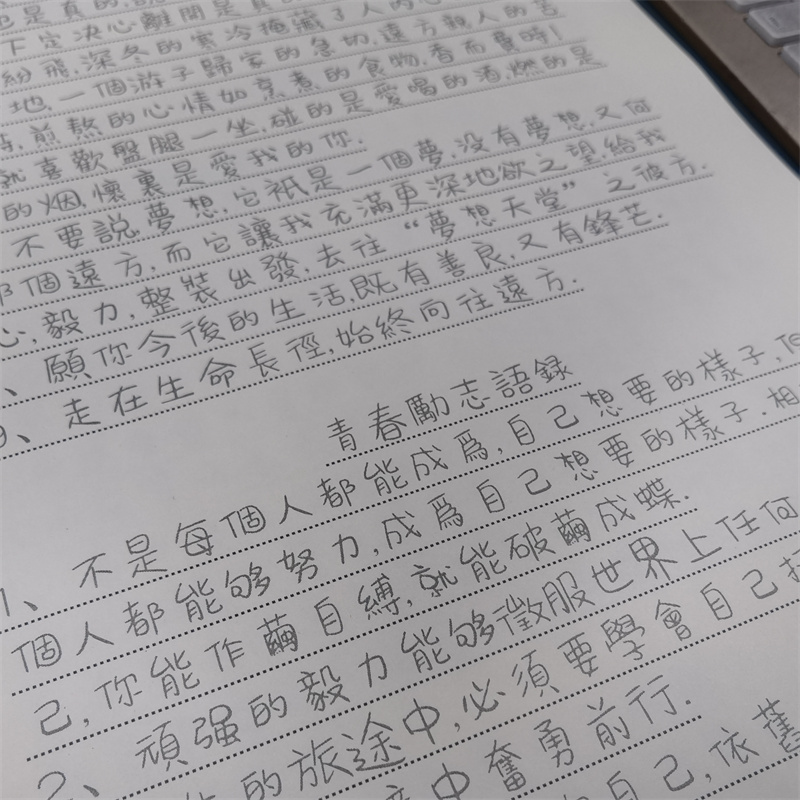 也是真的,
下定決心離開是真的
紛飛,深冬的寒冷掩藏了人內心
地,一個游子歸家的急切,遠方親人的苦
煎熬的心情如烹煮的食物,香而費時!
就喜歡盤腿一坐,碰的是愛唱的酒,燃的是
的烟,懷裏是愛我的你.
不要說夢想,它衹是一個夢,沒有夢想,又何
那個遠方,而它讓我充滿更深地欲之望,給我
心,毅力,整裝出發,去往“夢想天堂”之彼方.
、願你今後的生活,既有善良,又有鋒芒.
9、走在生命長徑,始終向往遠方.
青春勵志語錄
1、不是每個人都能成爲,自己想要的樣子,但
個人都能够努力,成爲自己想要的樣子.相
己,你能作繭自縛,就能破繭成蝶.
2、頑强的毅力能够徵服世界上任何
的旅途中,必須要學會自己打
中奮勇前行.
自己,依舊